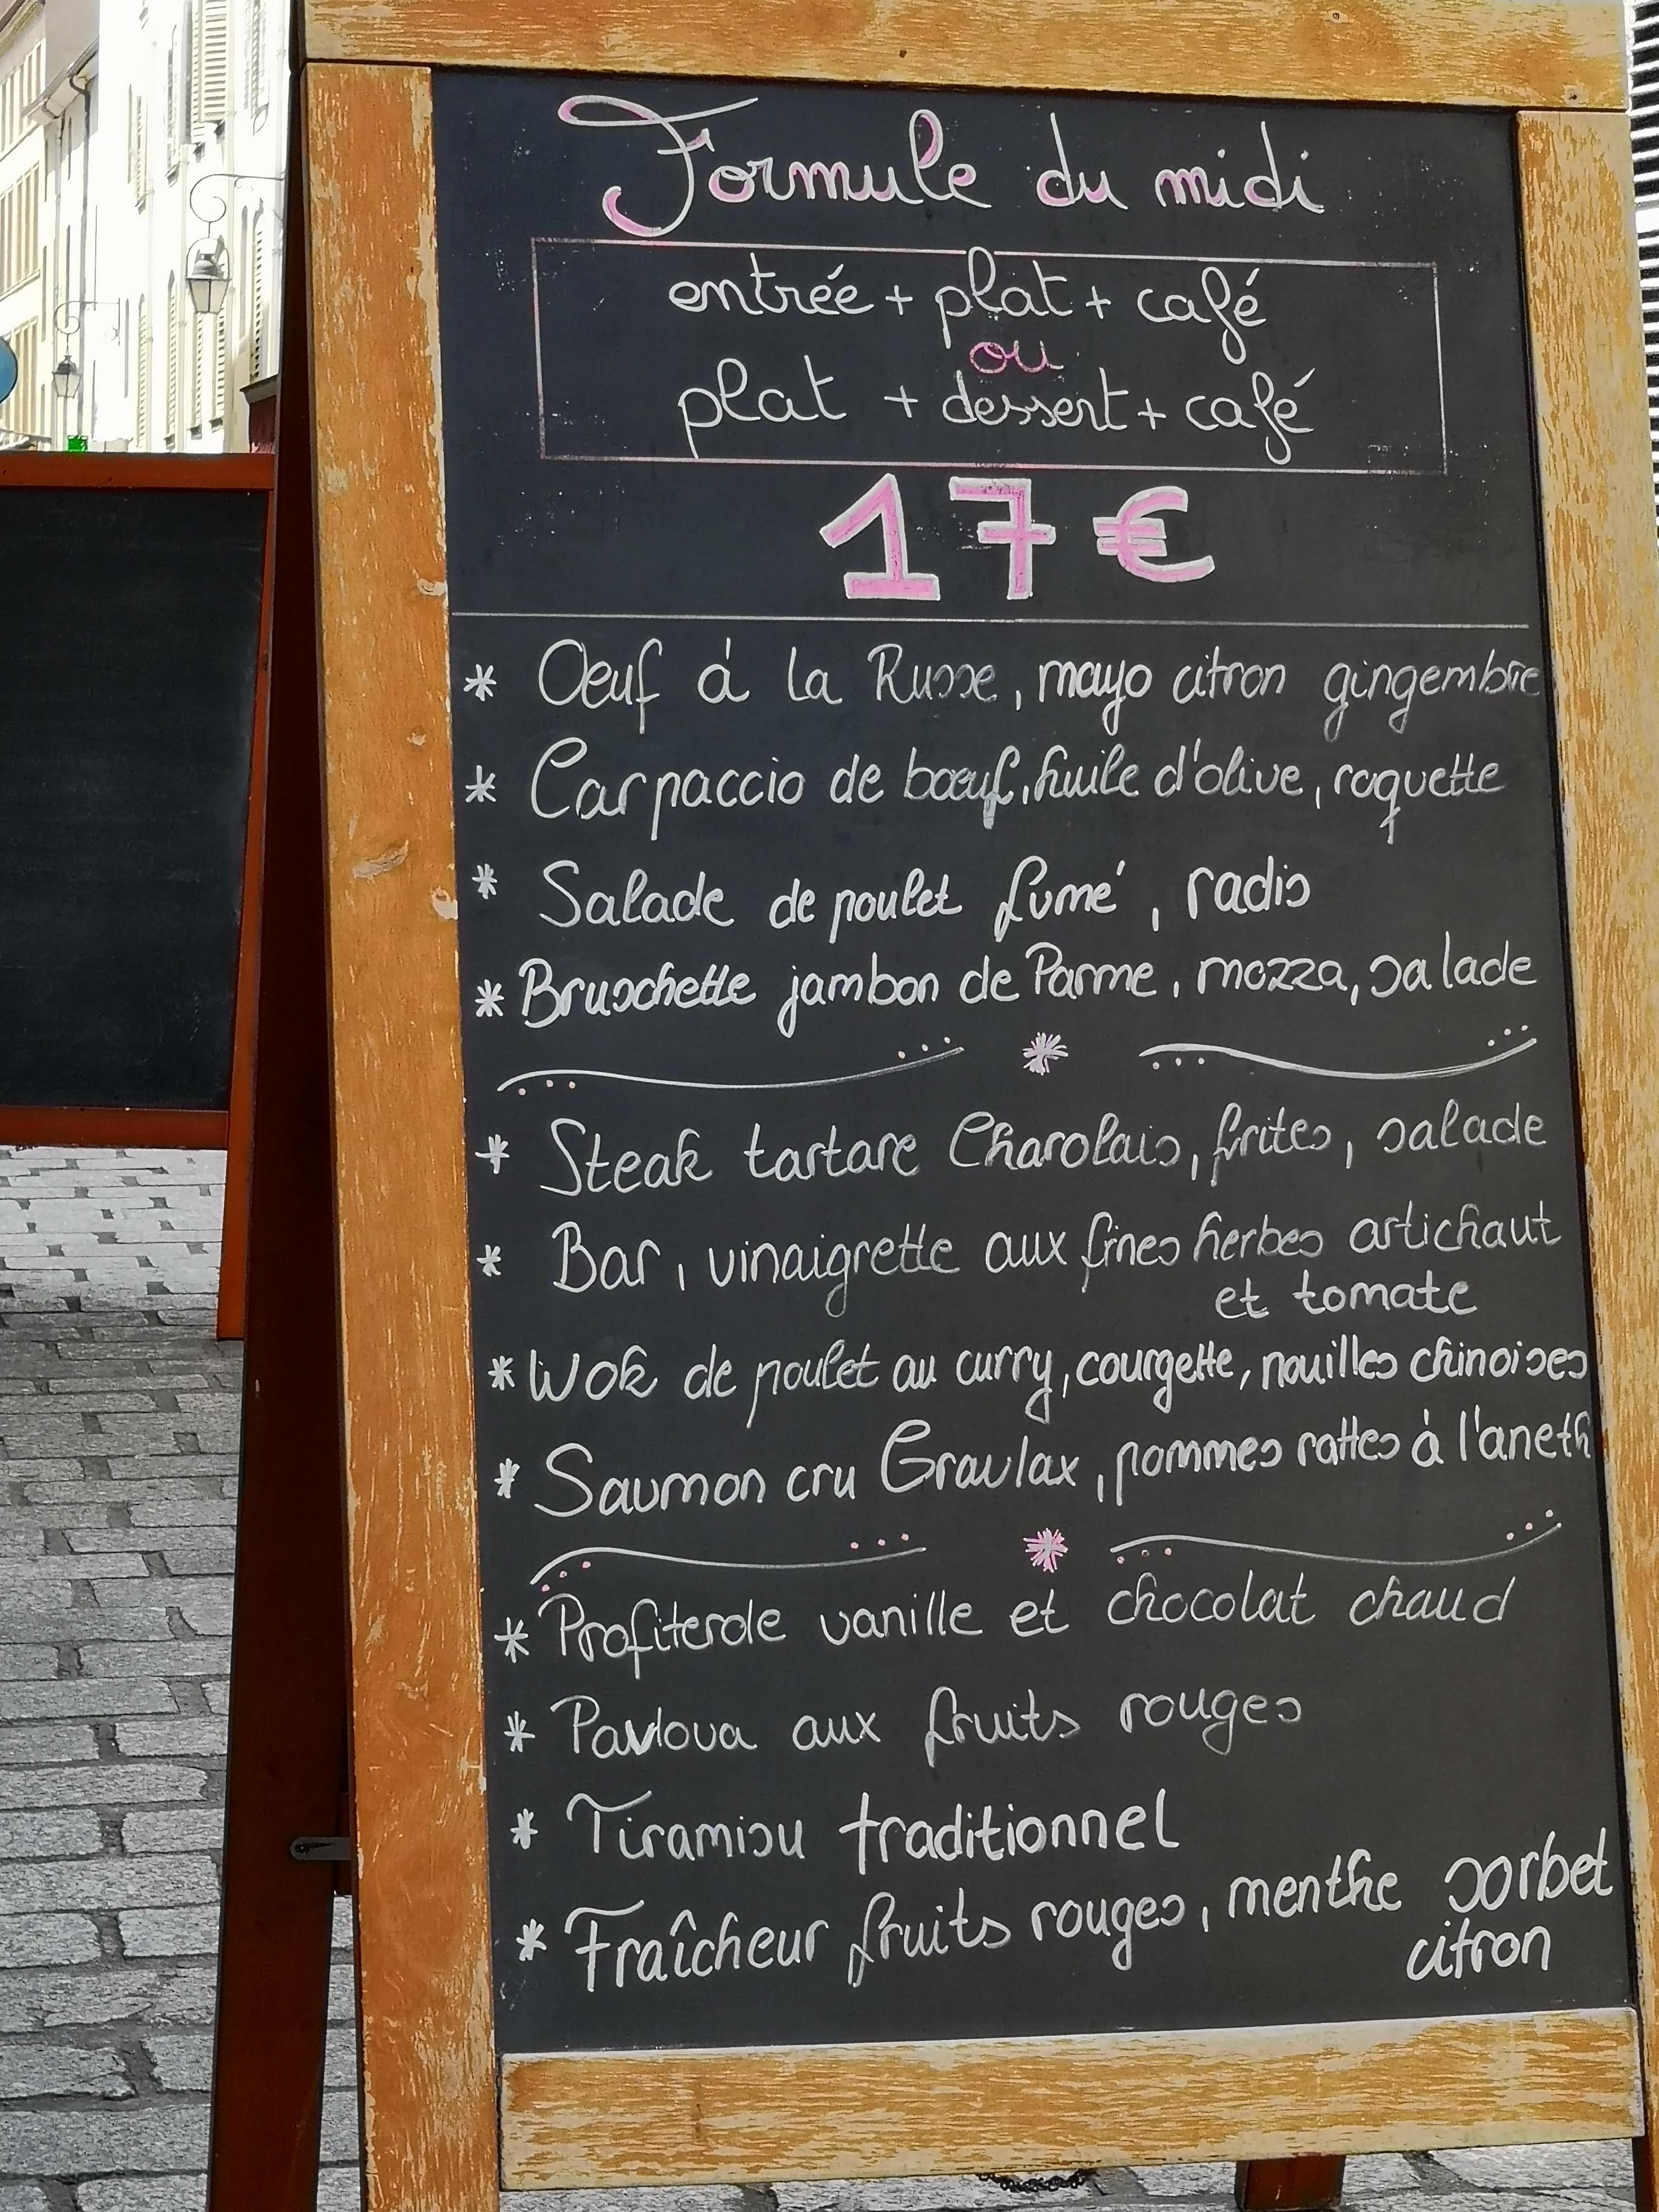 Formule du midi
entrée + plat + café
ou
plat + dessert + café
17€
* Oeuf à la Russe, mayo citron gingembre
* Carpaccio de bœuf, huile d'olive, roquette
* Salade de poulet fumé, radis
* Bruschette jambon de Parme, mozza, salade
* Steak tartare Charolais, frites, salade
* Bar, vinaigrette aux fines herbes artichaut
et tomate
* Wok de poulet au curry, courgette, nouilles chinoises
* Saumon cru Gravlax, pommes rattes à l'aneth
* Profiterole vanille et chocolat chaud
* Pavlova aux fruits rouges
* Tiramisu traditionnel
* Fraîcheur fruits rouges, menthe sorbet
citron